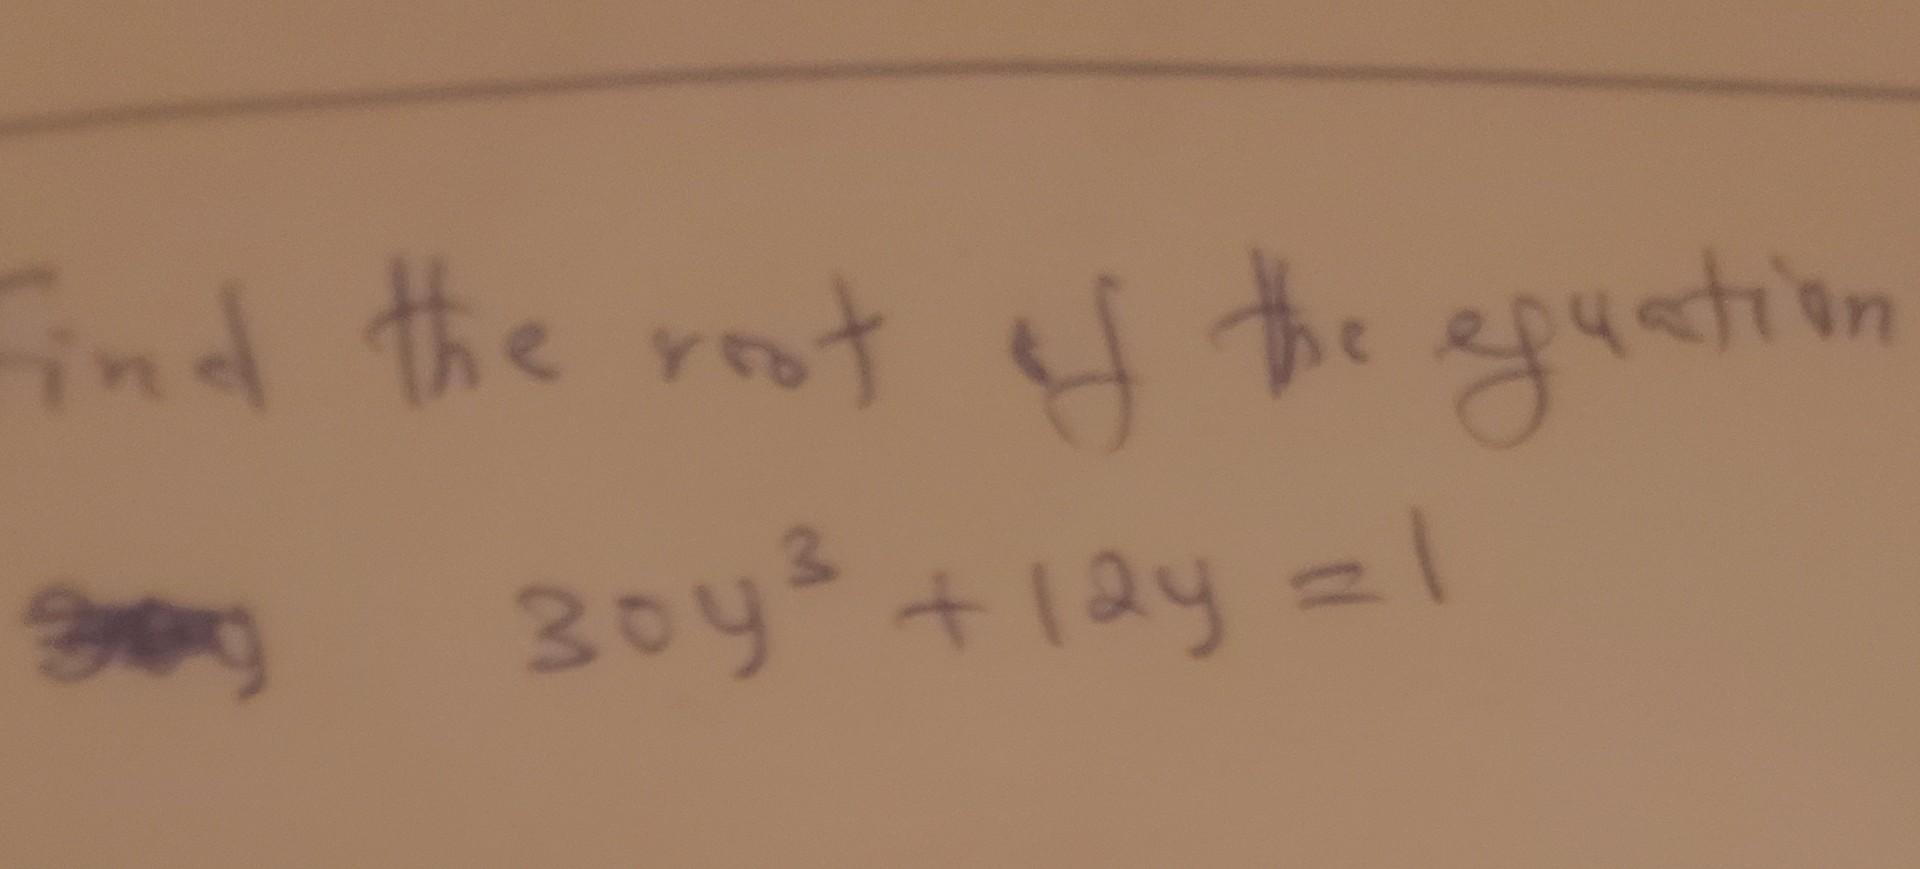 Find the root of the equation
30y³ + 12y = 1